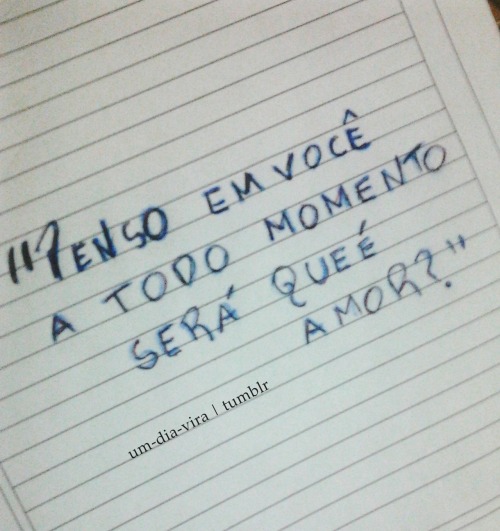 "PENSO EM VOCÊ
A TODO MOMENTO
SERÁ QUE É
AMOR?"
um-dia-vira | tumblr